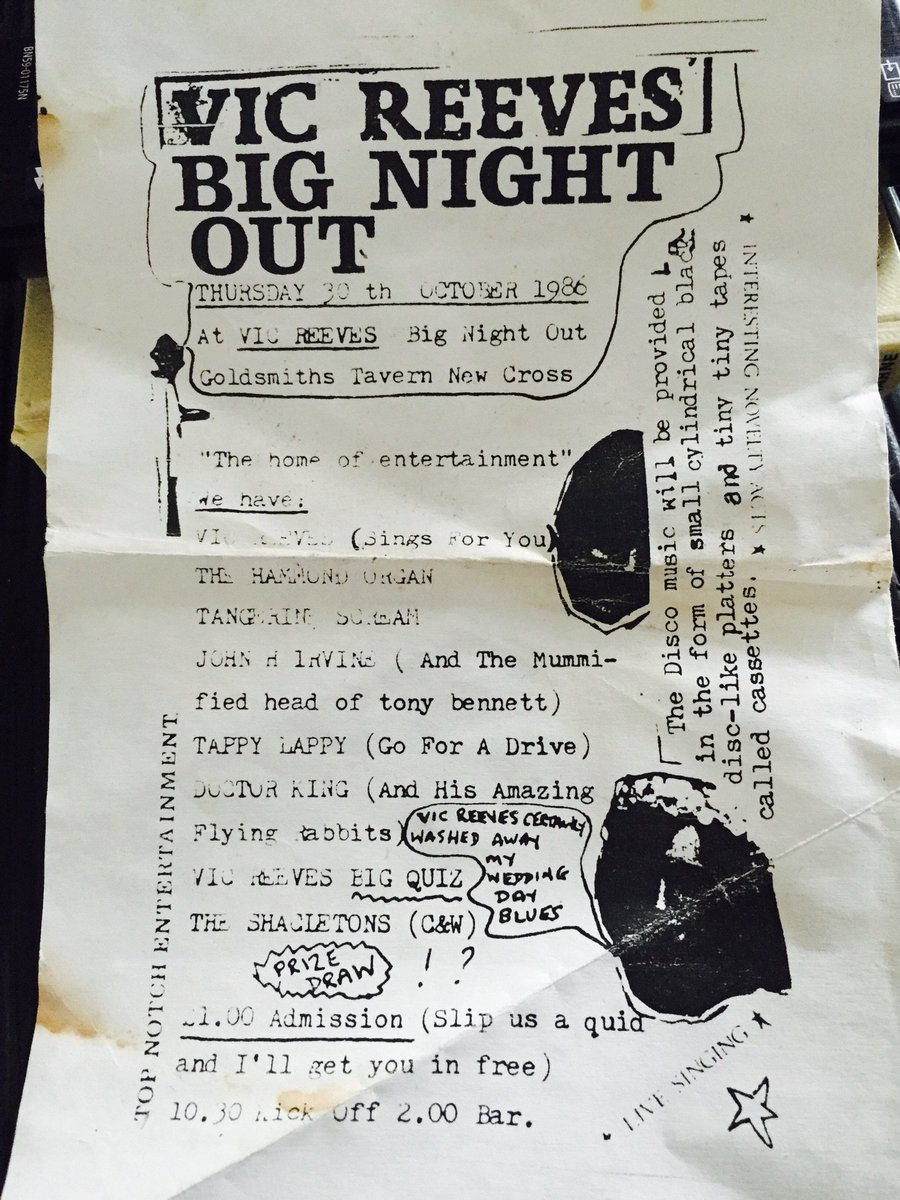 VIC REEVES'
BIG NIGHT
OUT
THURSDAY 30 th OCTOBER 1986
At VIC REEVES Big Night Out
Goldsmiths Tavern New Cross
"The home of entertainment"
We have:
VIC REEVES (Sings For You)
THE HAMMOND ORGAN
TANGERINE SCREAM
JOHN H IRVINE ( And The Mummi-
fied head of tony bennett)
TAPPY LAPPY (Go For A Drive)
DOCTOR KING (And His Amazing
Flying Rabbits)
VIC REEVES BIG QUIZ
THE SHACLETONS (C&W)
VIC REEVES CERTAINLY
WASHED AWAY
MY
WEDDING
DAY
BLUES
PRIZE
DRAW
! ?
£1.00 Admission (Slip us a quid
and I'll get you in free)
10.30 Kick Off 2.00 Bar.
TOP NOTCH ENTERTAINMENT
The Disco music will be provided
in the form of small cylindrical black
disc-like platters and tiny tiny tapes
called cassettes.
★ INTERESTING NOVELTY ACTS ★
LIVE SINGING ★
BN59-01175N